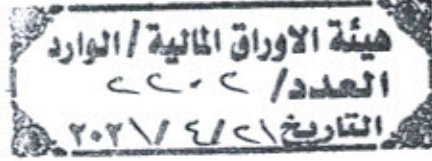 هيئة الاوراق المالية / الوارد
العدد/ ٢٢٠٢
التاريخ ٢١/ ٤ / ٢٠٢١